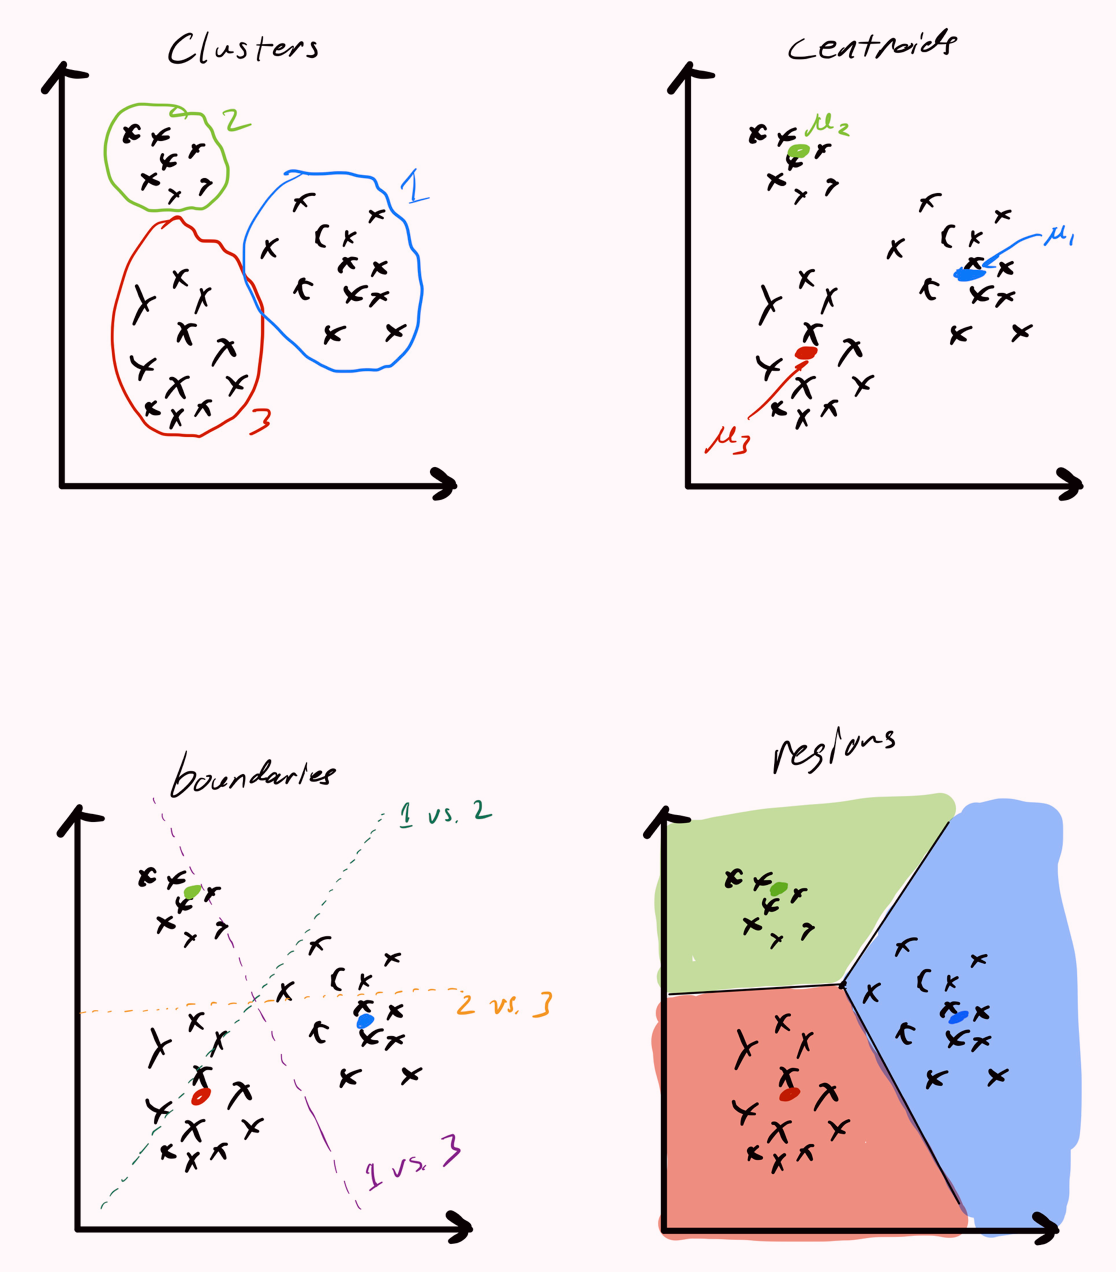 Clusters
2
1
3
centroids
μ2
μ1
μ3
boundaries
1 vs. 2
2 vs. 3
1 vs. 3
regions